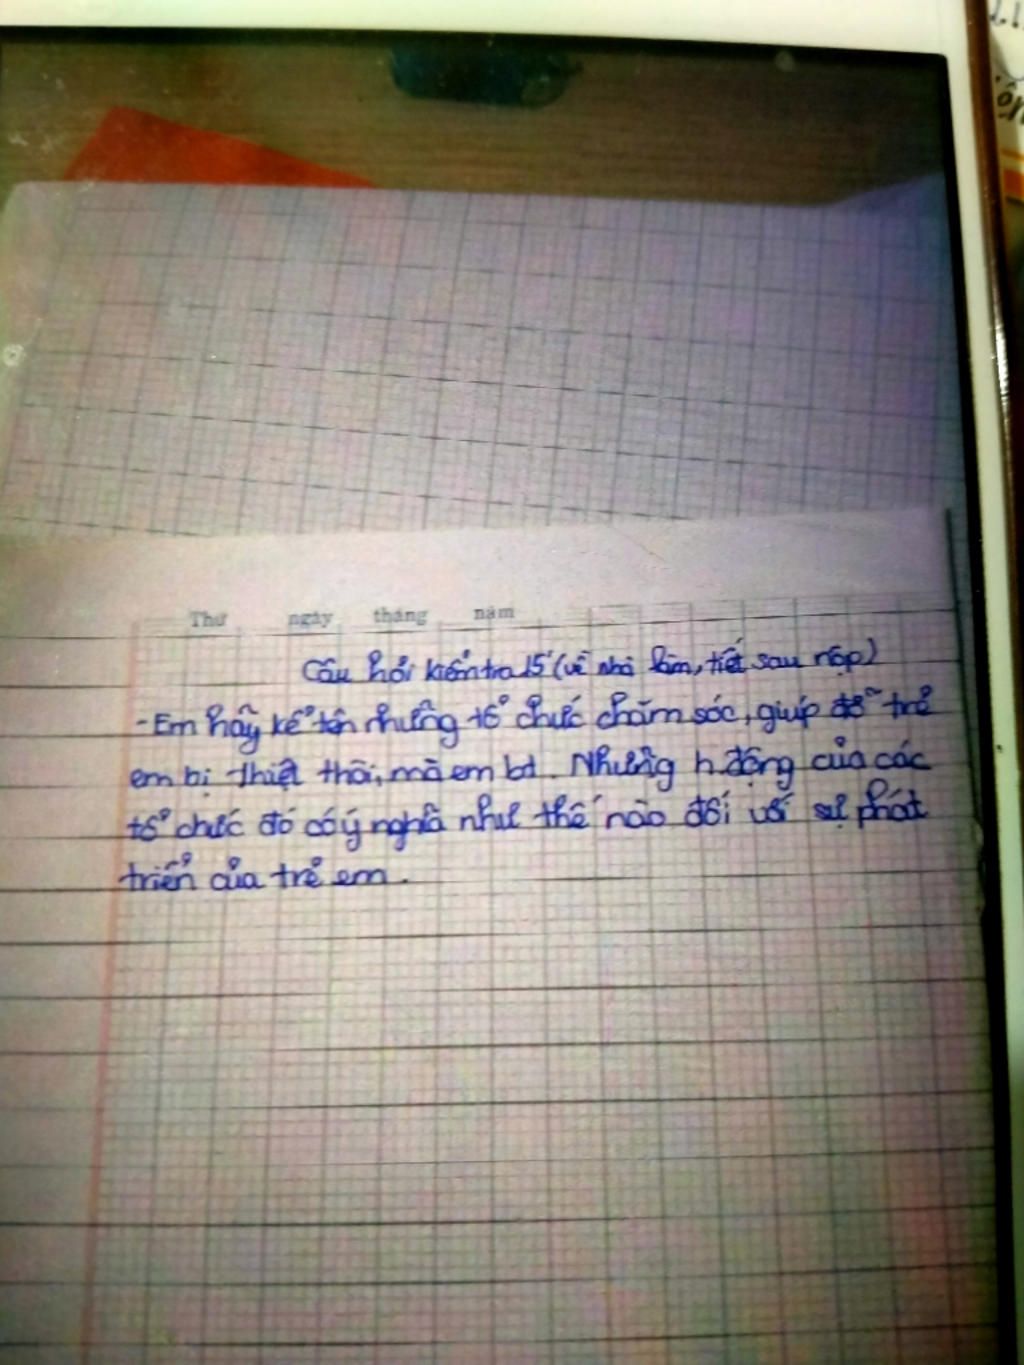 Thứ ngày tháng năm
Câu hỏi kiểm tra 15' (về nhà làm, tiết sau nộp)
- Em hãy kể tên những tổ chức chăm sóc, giúp đỡ trẻ
em bị thiệt thòi, mà em bt. Những h.động của các
tổ chức đó có ý nghĩa như thế nào đối với sự phát
triển của trẻ em.